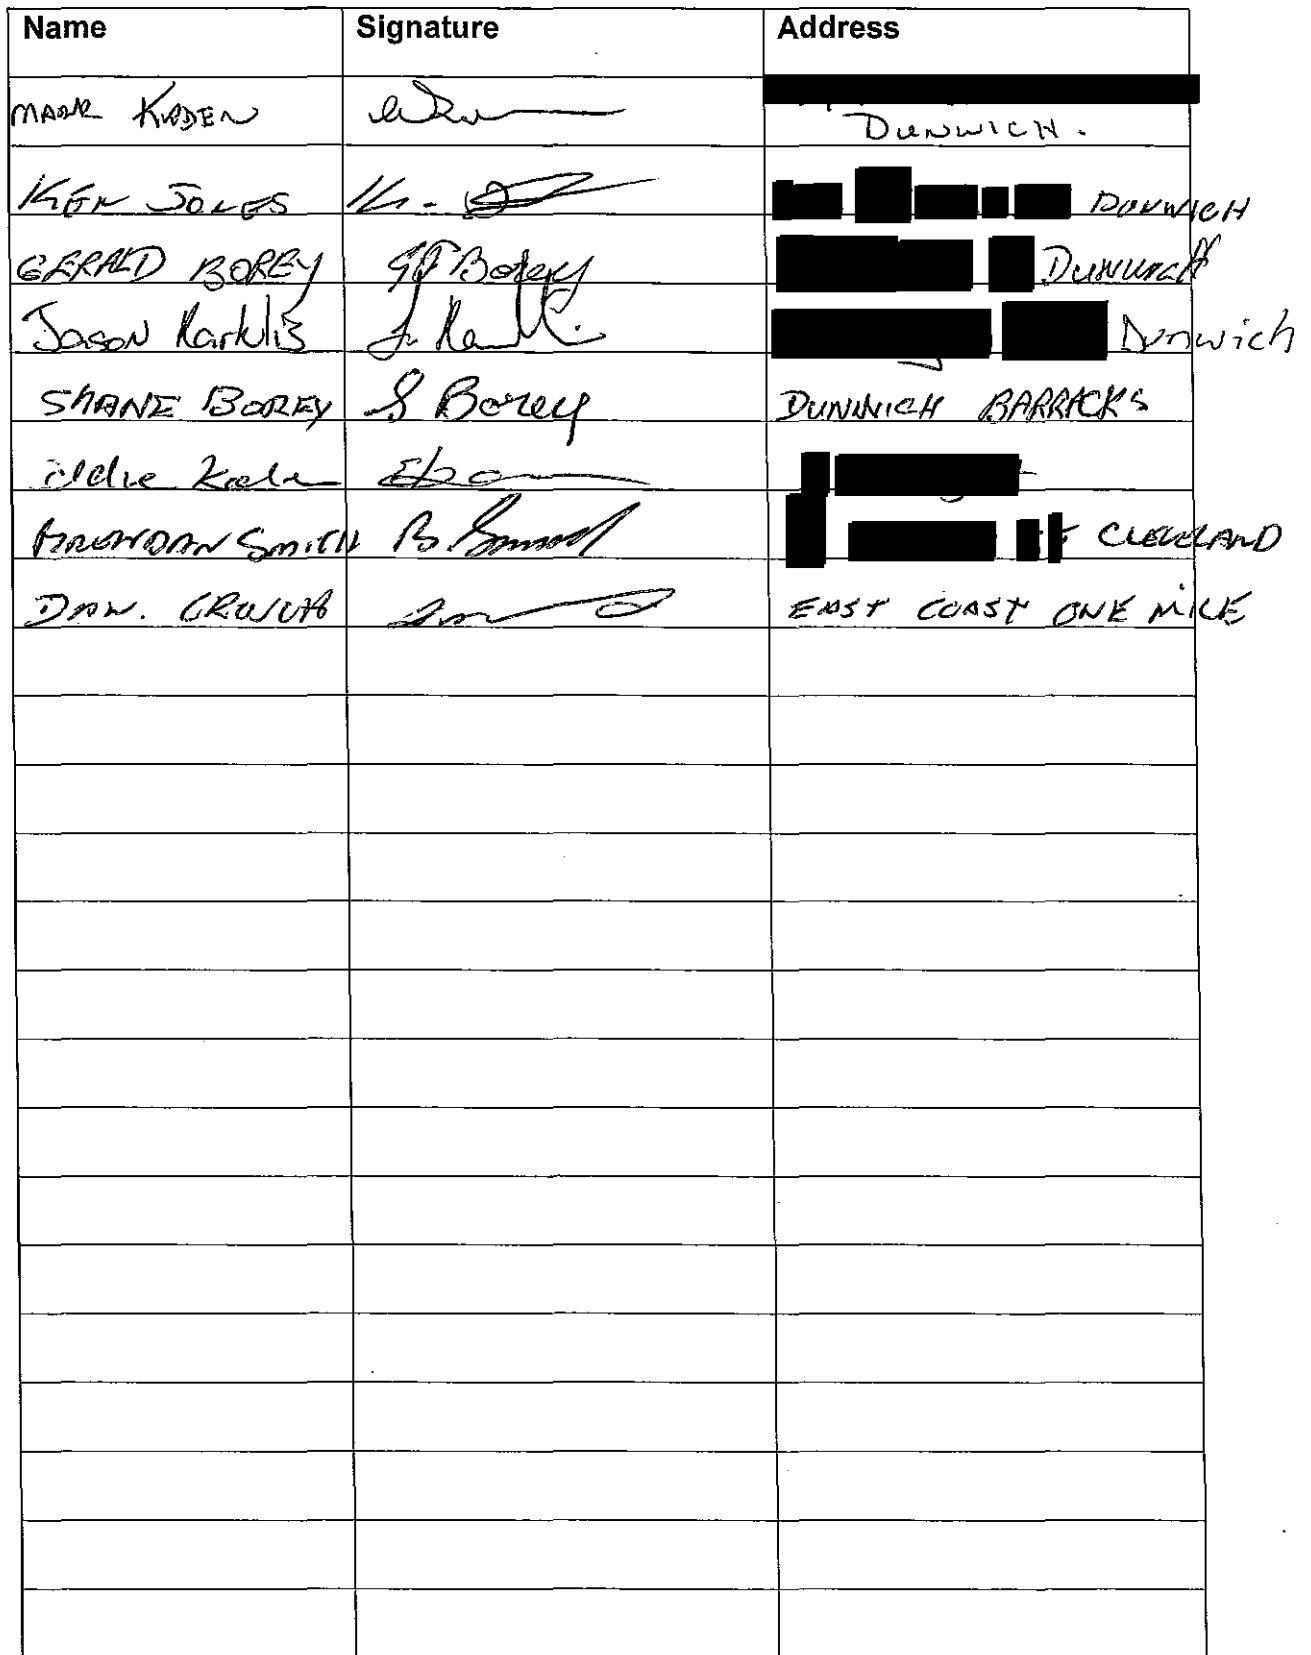 Name Signature Address
MARK KADEN DUNWICH.
KEN JONES K. DUNWICH
GERALD BOREY GJ Borey DUNWICH
Jason Karklis J. Dunwich
SHANE BOREY S Borey DUNWICH BARRACKS
BRENDAN SMITH B. CLEVELAND
DAN. EAST COAST ONE MILE